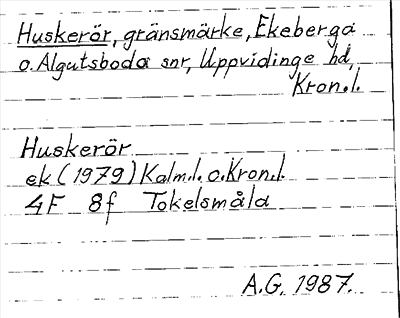 Huskerör, gränsmärke, Ekeberga
o. Algutsboda snr, Uppvidinge hd,
Kron.l.
Huskerör
ek (1979) Kalm.l. o. Kron.l.
4F 8f Tokelsmåla
A.G. 1987.